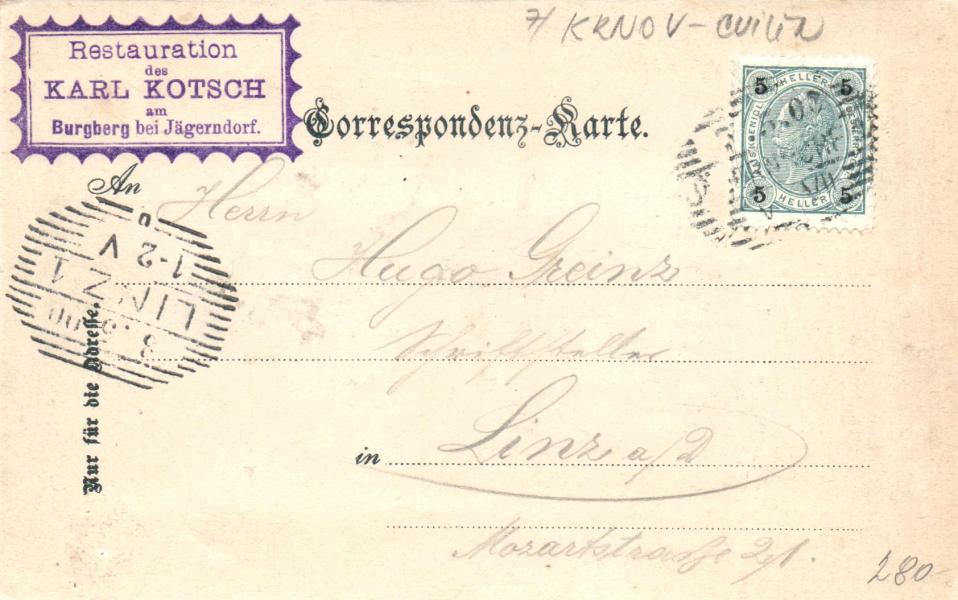 7/ KRNOV - CVILÍN
Restauration
des
KARL KOTSCH
am
Burgberg bei Jägerndorf.
Correspondenz-Karte.
5 HELLER 5
5 HELLER 5
An Herrn
Hugo Greinz
Schriftsteller
in Linz a/D
Mozartstrasse
280
Nur für die Adresse.
LINZ 1
1-2 V